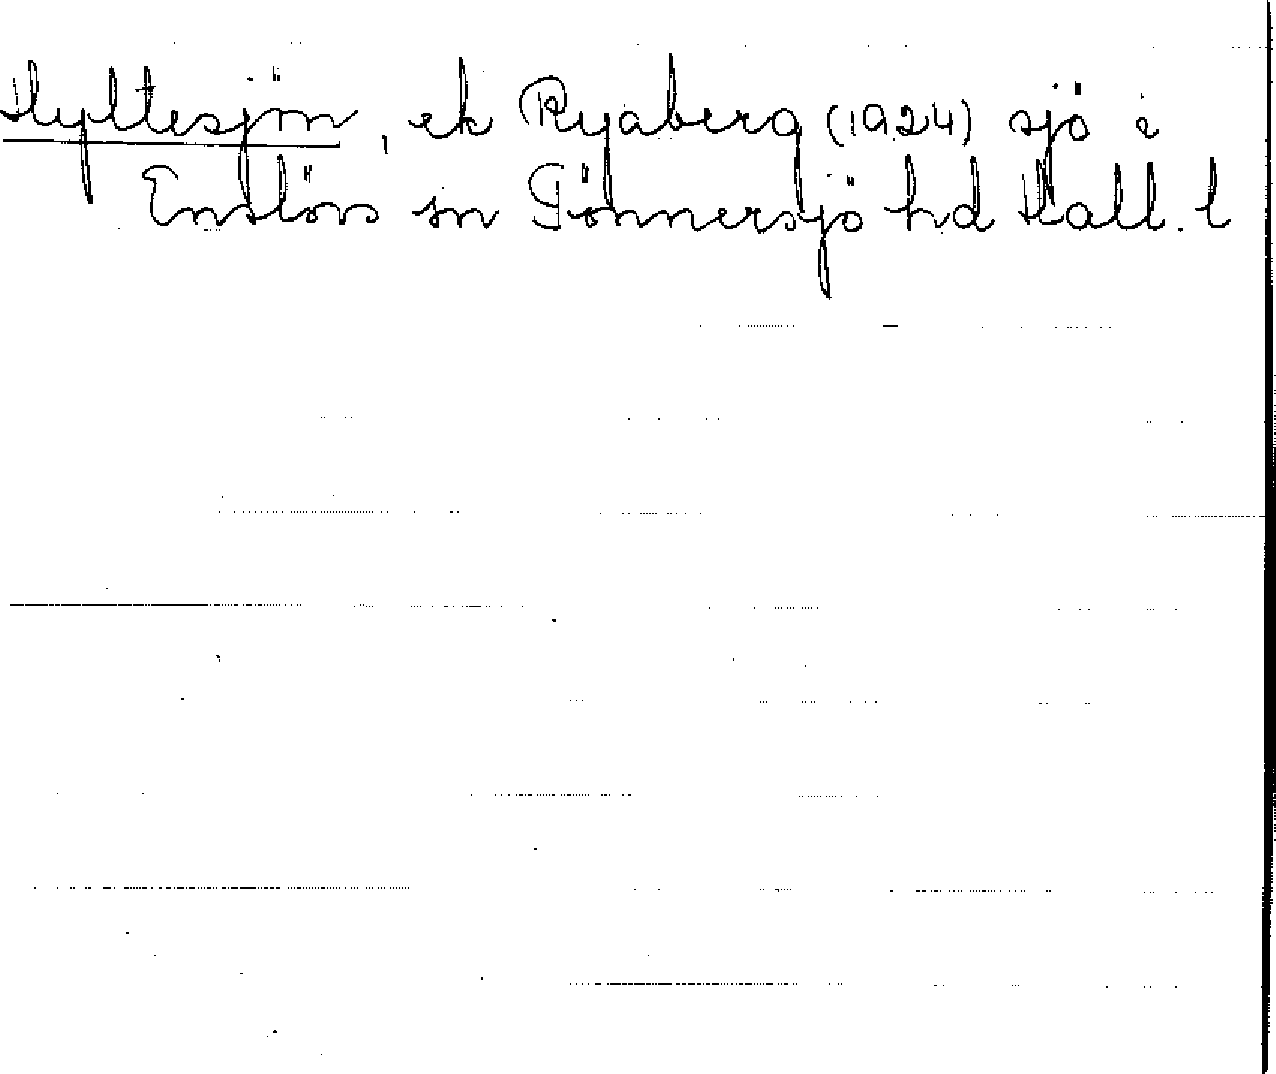 Hyltesjön, ek Ryaberg (1924) sjö i
Enslövs sn Tönnersjö hd Hall. l